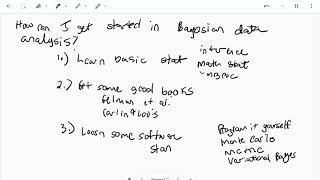 How can I get started in Bayesian data
analysis?
1.) Learn basic stat
inference
math stat
2.) Get some good books
Gelman et al.
Carlin & Louis
3.) Learn some software
Stan
Program it yourself
Monte Carlo
MCMC
Variational Bayes